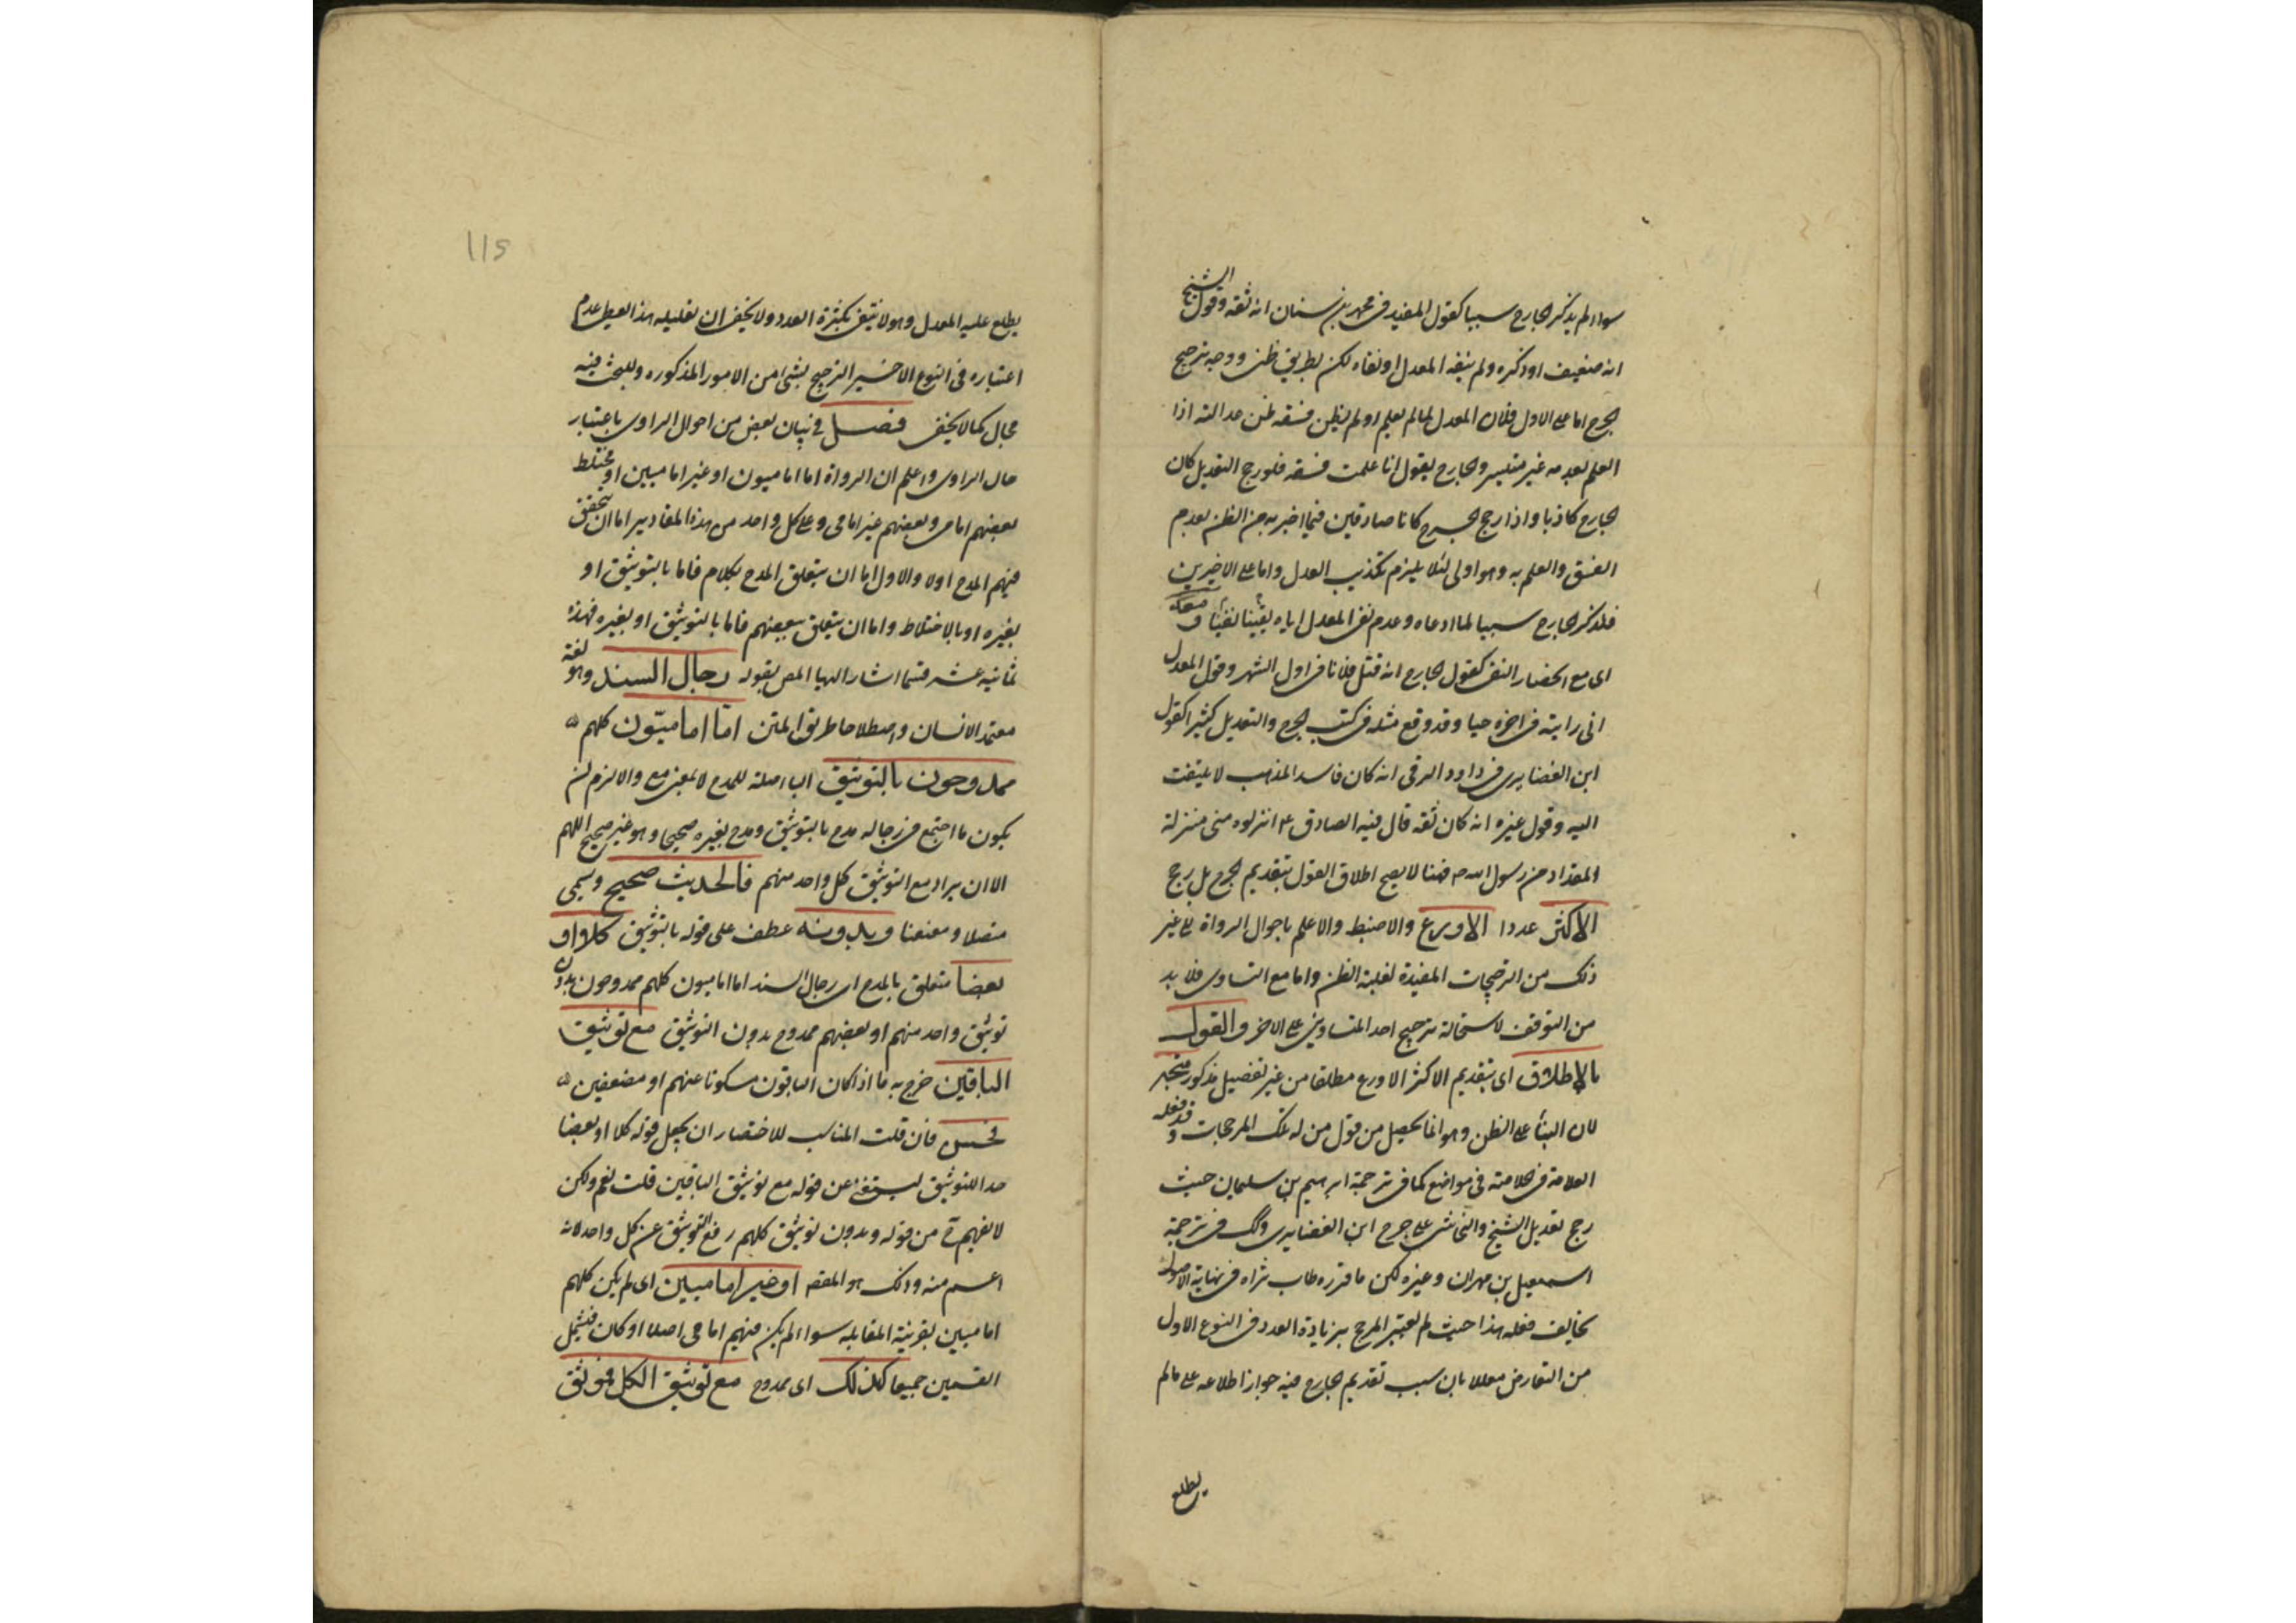 سواء لم يذكر الجارح سببا كقول المفيد في محمد بن سنان انه ثقة وقول الشيخ
انه ضعيف او ذكره ولم ينفه المعدل او نفاه لكن بطريق ظن ووجه ترجيح
الجرح اما على الاول فلان المعدل لما لم يعلم او لم يظن فسقه ظن عدالته اذا
العلم بعدمه غير متيسر والجارح يقول انا علمت فسقه فلو رجح التعديل كان
الجارح كاذبا واذا رجح الجرح كانا صادقين فيما اخبر به من الظن بعدم
الفسق والعلم به وهو اولى لئلا يلزم تكذيب العدل واما على الاخيرين
فلذكر الجارح سببا لما ادعاه وعدم نفى المعدل اياه يقينا
اى مع انحضار النفى كقول الجارح انه قتل فلانا في اول الشهر وقول المعدل
انى رايته في اخره حيا وقد وقع مثله في كتب الجرح والتعديل كثيرا كقول
ابن الغضايرى في داود الرقى انه كان فاسد المذهب لا يلتفت
اليه وقول غيره انه كان ثقة قال فيه الصادق ع انزلوه منى منزلة
المقداد من رسول الله ص فهنا لا يصح اطلاق القول بتقديم الجرح بل يرجح
الاكثر عددا الاورع والاضبط والاعلم باحوال الرواة الى غير
ذلك من الترجيحات المفيدة لغلبة الظن واما مع التساوى فلا بد
من التوقف لاستحالة ترجيح احد المتساويين على الاخر والقول
بالاطلاق اى بتقديم الاكثر الاورع مطلقا من غير تفصيل مذكور متجه
لان البناء على الظن وهو انما يحصل من قول من له تلك المرجحات وقد فعله
العلامة في الخلاصة في مواضع كما في ترجمة ابرهيم بن سليمان حيث
رجح تعديل الشيخ والنجاشى على جرح ابن الغضايرى وكذلك في ترجمة
اسمعيل بن مهران وغيره لكن ما قرره طاب ثراه في نهاية الاصول
يخالف فعله هذا حيث لم يعتبر المرجح بزيادة العدد في النوع الاول
من التعارض معللا بان سبب تقديم الجارح فيه جواز اطلاعه على ما لم
يطلع
115
يطلع عليه المعدل وهو لا ينتفى بكثرة العدد ولا يخفى ان تعليله هذا يعطى عدم
اعتباره في النوع الاخير الترجيح بشئ من الامور المذكوره وللبحث فيه
مجال كما لا يخفى فصل في بيان بعض من احوال الراوى باعتبار
حال الراوى واعلم ان الرواة اما اماميون او غير اماميين او مختلط
بعضهم امامى وبعضهم غير امامى وعلى كل واحد من هذه المقادير اما ان يتحقق
فيهم المدح اولا والاول اما ان يتعلق المدح بكلهم فاما بالتوثيق او
بغيره او بالاختلاط واما ان يتعلق ببعضهم فاما بالتوثيق او بغيره فهذه
ثمانية عشر قسما اشار اليها المص بقوله رجال السند وهو لغة
معتمد الانسان واصطلاحا طريق المتن امّا اماميّون كلهم
ممدوحون بالتوثيق الباء صلة للمدح لا بمعنى مع والا لزم ان
يكون ما اجتمع في رجاله مدح بالتوثيق ومدح بغيره صحيحا وهو غير صحيح اللهم
الا ان يراد مع التوثيق كل واحد منهم فالحديث صحيح ويسمى
متصلا ومعنعنا وبدونه عطف على قوله بالتوثيق كلا او
بعضا متعلق بالمدح اى رجال السند اما اماميون كلهم ممدوحون بدون
توثيق واحد منهم او بعضهم ممدوح بدون التوثيق مع توثيق
الباقين خرج به ما اذا كان الباقون مسكوتا عنهم او مضعفين
فحسن فان قلت المناسب للاختصار ان يجعل قوله كلا او بعضا
حد اللتوثيق ليستغنى عن قوله مع توثيق الباقين قلت نعم ولكن
لا نفهم من قوله وبدون توثيق كلهم رفع التوثيق عن كل واحد لانه
اعم منه وذلك هو المقصد او غير اماميين اى لم يكن كلهم
اماميين بقرينة المقابلة سواء لم يكن فيهم امامى اصلا او كان فيشمل
القسمين جميعا كذلك اى ممدوح مع توثيق الكل فموثق